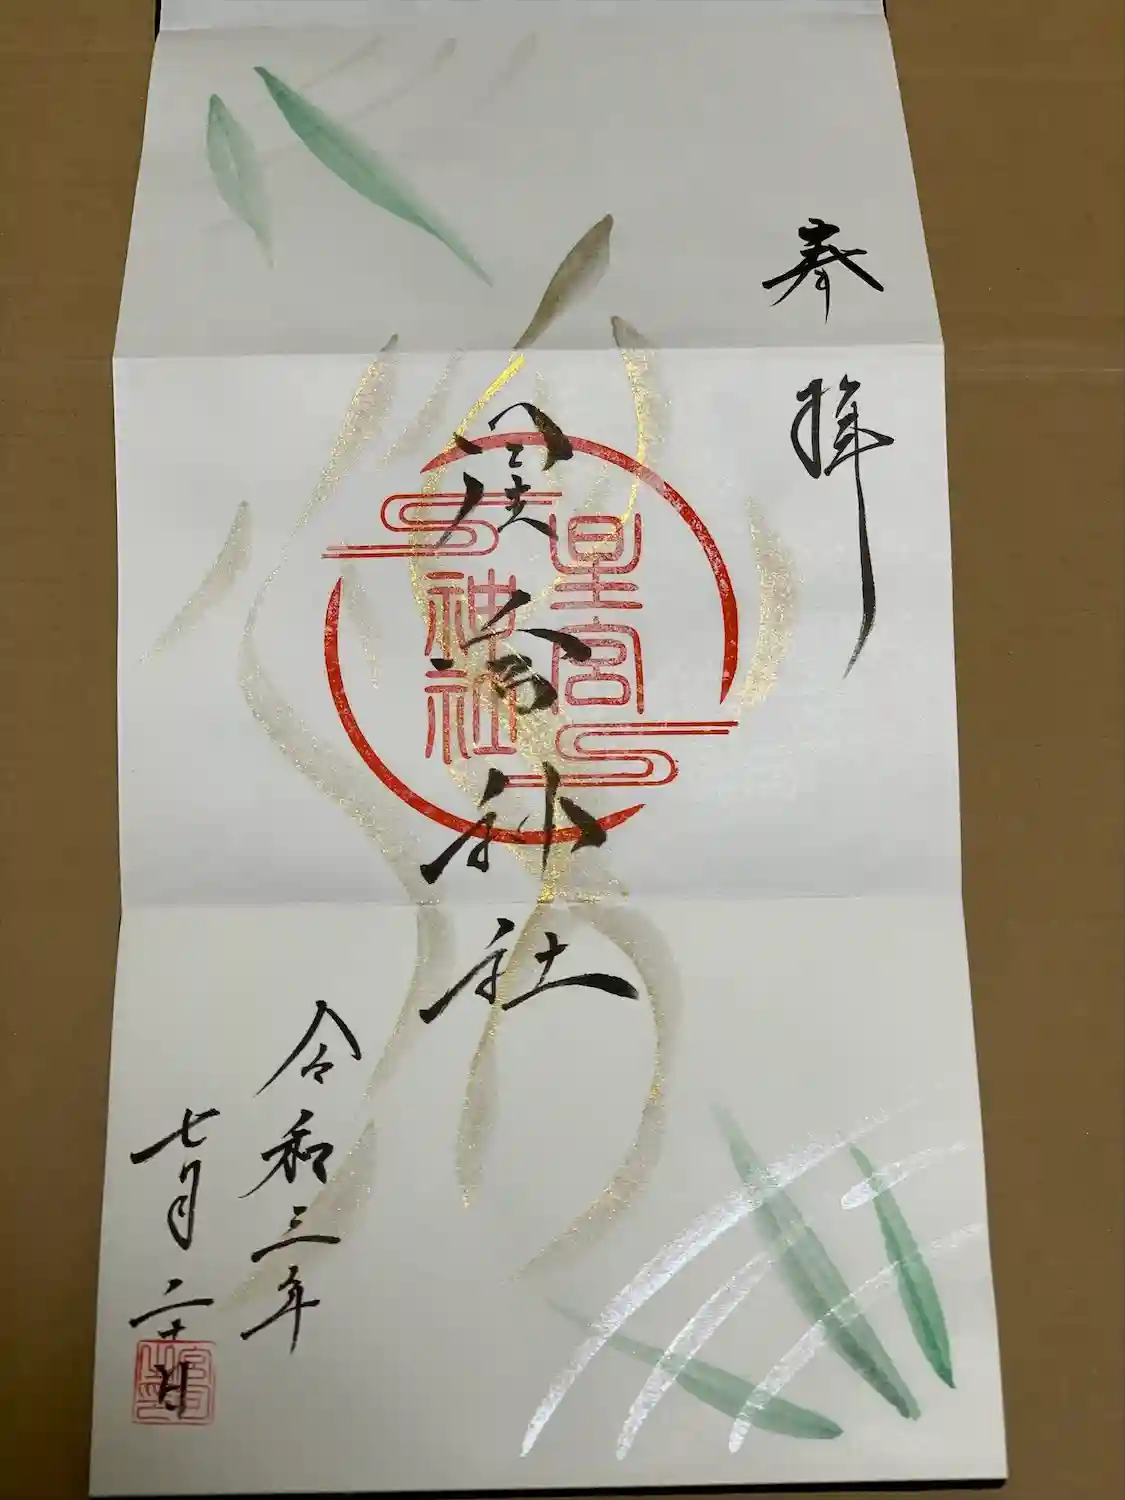 奉拝
星宮神社
星宮
神社
令和三年
七月二十日